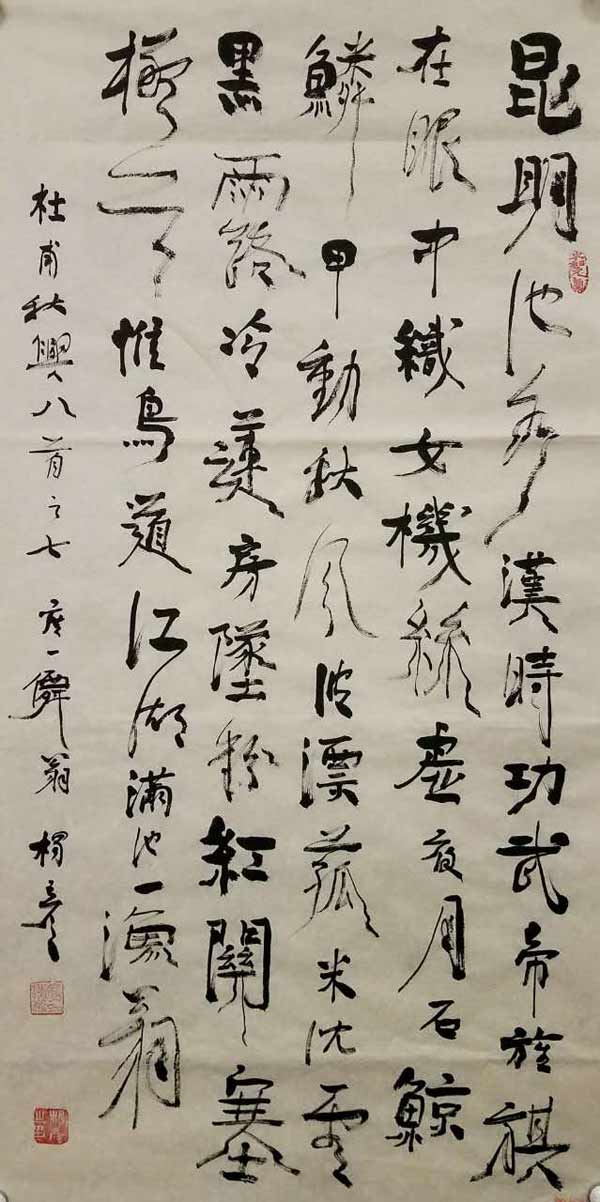 昆明池水漢時功武帝旌旗
在眼中織女機絲虛夜月石鯨
鱗甲動秋風波漂菰米沈雲
黑露冷蓮房墜粉紅關塞
極天惟鳥道江湖滿地一漁翁
杜甫秋興八首之七 一僻翁